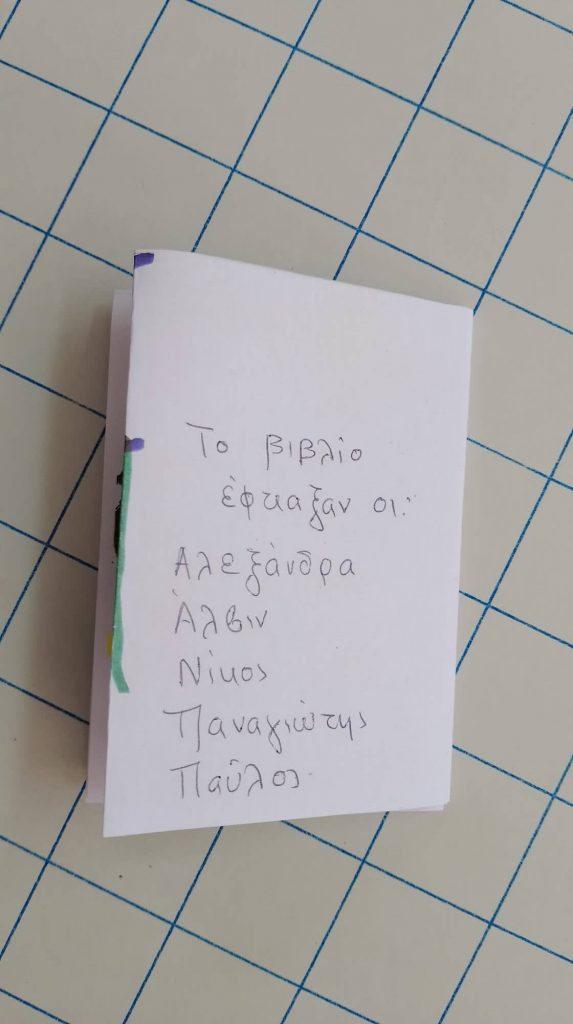 Το βιβλίο
έφτιαξαν οι:
Αλεξάνδρα
Άλβιν
Νίκος
Παναγιώτης
Παύλος